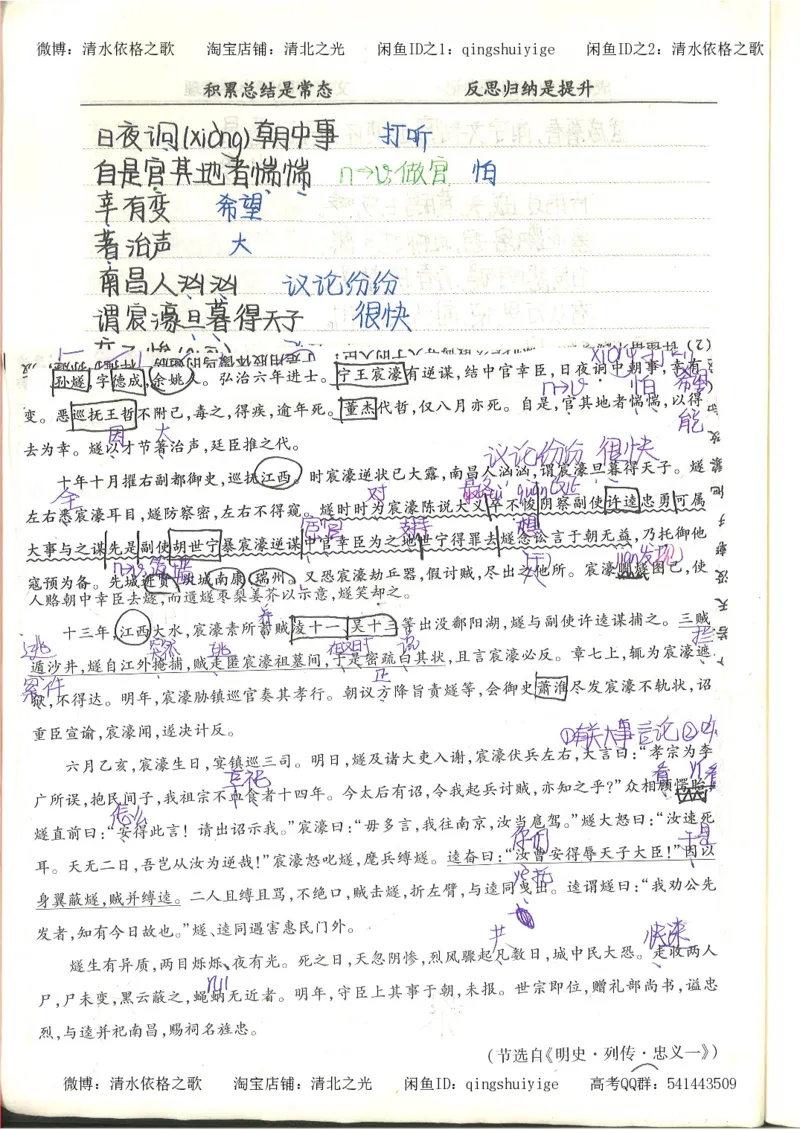 微博：清水依格之歌 淘宝店铺：清北之光 闲鱼ID之1：qingshuiyige 闲鱼ID之2：清水依格之歌
积累总结是常态 反思归纳是提升
日夜诇(xiòng)朝中事 打听
自是官其地者惴惴 n→v 做官 怕
幸有变 希望
著治声 大
南昌人汹汹 议论纷纷
谓宸濠旦暮得天子 很快
xiòng 打听
孙燧,字德成,余姚人。弘治六年进士。宁王宸濠有逆谋,结中官幸臣,日夜诇中朝事,幸有
n→v 怕 希望
变。恶巡抚王哲不附己,毒之,得疾,逾年死。董杰代哲,仅八月亦死。自是,官其地者惴惴,以得
因 大 能
去为幸。燧以才节著治声,廷臣推之代。
议论纷纷 很快
十年十月擢右副都御史,巡抚江西。时宸濠逆状已大露,南昌人汹汹,谓宸濠旦暮得天子。燧
对
左右悉宸濠耳目,燧防察密,左右不得窥。燧时时为宸濠陈说大义,卒不悛。阴察副使许逵忠勇可属
宦官 想
大事,与之谋。先是副使胡世宁暴宸濠逆谋,中官幸臣为之地,世宁得罪去。燧念讼言于朝无益,乃托御他
寇预为备。先城进贤,次城南康、瑞州。又恐宸濠劫兵器,假讨贼,尽出之他所。宸濠瞷燧图己,使
人赂朝中幸臣去燧,而遗燧枣梨姜芥以示意,燧笑却之。
养
十三年,江西大水,宸濠素所蓄贼凌十一、吴十三等出没鄱阳湖,燧与副使许逵谋捕之。三贼
逃 拦
遁沙井,燧自江外掩捕,贼走匿宸濠祖墓间,于是密疏白其状,且言宸濠必反。章七上,辄为宸濠遮
正
狱,不得达。明年,宸濠胁镇巡官奏其孝行。朝议方降旨责燧等,会御史萧淮尽发宸濠不轨状,诏
重臣宣谕,宸濠闻,遂决计反。
①有关大事言论
六月乙亥,宸濠生日,宴镇巡三司。明日,燧及诸大吏入谢,宸濠伏兵左右,大言曰:“孝宗为李
看
广所误,抱民间子,我祖宗不血食者十四年。今太后有诏,令我起兵讨贼,亦知之乎?”众相顾愕眙,
怎么
燧直前曰:“安得此言! 请出诏示我。”宸濠曰:“毋多言,我往南京,汝当扈驾。”燧大怒曰:“汝速死
你们 于是
耳。天无二日,吾岂从汝为逆哉!”宸濠怒叱燧,麾兵缚燧。逵奋曰:“汝曹安得辱天子大臣!”因以
身翼蔽燧,贼并缚逵。二人且缚且骂,不绝口,贼击燧,折左臂,与逵同曳出。逵谓燧曰:“我劝公先
发者,知有今日故也。”燧、逵同遇害惠民门外。
共 快来
燧生有异质,两目烁烁,夜有光。死之日,天忽阴惨,烈风骤起凡数日,城中民大恐。走收两人
尸,尸未变,黑云蔽之,蝇蚋无近者。明年,守臣上其事于朝,未报。世宗即位,赠礼部尚书,谥忠
烈,与逵并祀南昌,赐祠名旌忠。
(节选自《明史·列传·忠义一》)
微博：清水依格之歌 淘宝店铺：清北之光 闲鱼ID：qingshuiyige 高考QQ群：541443509